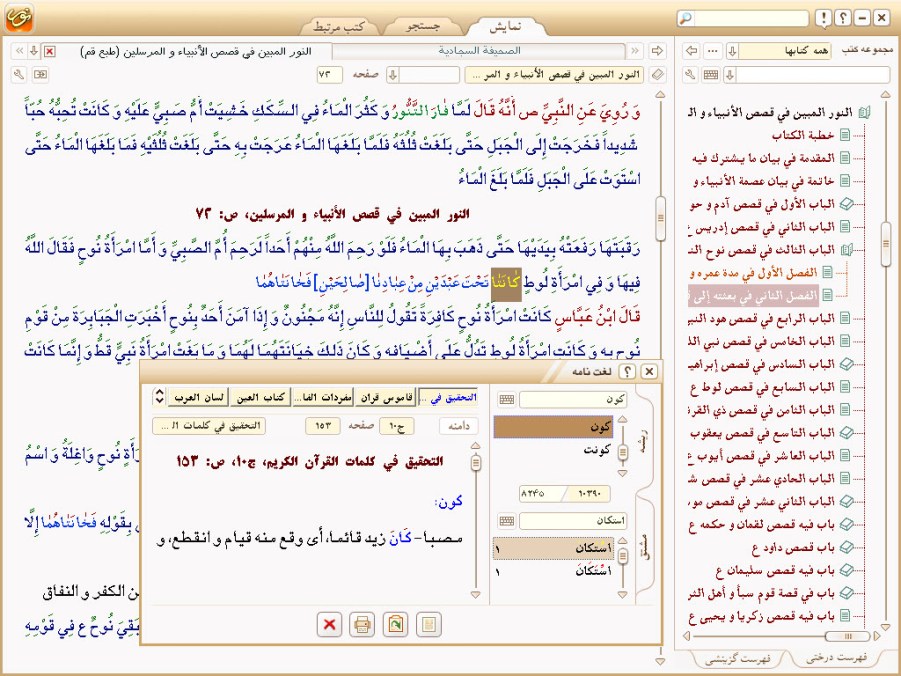 نمایش
جستجو
کتب مرتبط
مجموعه کتب
همه کتابها
الصحيفة السجادية
النور المبين في قصص الأنبياء و المرسلين (طبع قم)
النور المبين في قصص الأنبياء و المر ...
صفحه
٧٣
النور المبين في قصص الأنبياء و ال
خطبة الكتاب
المقدمة في بيان ما يشترك فيه
خاتمة في بيان عصمة الأنبياء و
الباب الأول في قصص آدم و حو
الباب الثاني في قصص إدريس ع
الباب الثالث في قصص نوح الن
الفصل الأول في مدة عمره و
الفصل الثاني في بعثته إلى
الباب الرابع في قصص هود النبي
الباب الخامس في قصص نبي الل
الباب السادس في قصص إبراهي
الباب السابع في قصص لوط ع
الباب الثامن في قصص ذي القرن
الباب التاسع في قصص يعقوب
الباب العاشر في قصص أيوب ع
الباب الحادي عشر في قصص ش
الباب الثاني عشر في قصص مو
باب فيه قصص لقمان و حكمه ع
باب قصص داود ع
باب فيه قصص سليمان ع
باب في قصة قوم سبأ و أهل الثر
باب فيه قصص زكريا و يحيى ع
فهرست درختی
فهرست گزینشی
وَ رُوِيَ عَنِ النَّبِيِّ ص أَنَّهُ قَالَ لَمَّا فَارَ التَّنُّورُ وَ كَثُرَ الْمَاءُ فِي السِّكَكِ خَشِيَتْ أُمُّ صَبِيٍّ عَلَيْهِ وَ كَانَتْ تُحِبُّهُ حُبّاً
شَدِيداً فَخَرَجَتْ إِلَى الْجَبَلِ حَتَّى بَلَغَتْ ثُلُثَهُ فَلَمَّا بَلَغَهَا الْمَاءُ عَرَجَتْ بِهِ حَتَّى بَلَغَتْ ثُلُثَيْهِ فَمَا بَلَغَهَا الْمَاءُ حَتَّى
اسْتَوَتْ عَلَى الْجَبَلِ فَلَمَّا بَلَغَ الْمَاءُ
النور المبين في قصص الأنبياء و المرسلين، ص: ٧٣
رَقَبَتَهَا رَفَعَتْهُ بِيَدَيْهَا حَتَّى ذَهَبَ بِهَا الْمَاءُ فَلَوْ رَحِمَ اللَّهُ مِنْهُمْ أَحَداً لَرَحِمَ أُمَّ الصَّبِيِّ وَ أَمَّا امْرَأَةُ نُوحٍ فَقَالَ اللَّهُ
فِيهَا وَ فِي امْرَأَةِ لُوطٍ كَانَتَا تَحْتَ عَبْدَيْنِ مِنْ عِبَادِنَا [صَالِحَيْنِ] فَخَانَتَاهُمَا
قَالَ ابْنُ عَبَّاسٍ كَانَتْ امْرَأَةُ نُوحٍ كَافِرَةً تَقُولُ لِلنَّاسِ إِنَّهُ مَجْنُونٌ وَ إِذَا آمَنَ أَحَدٌ بِنُوحٍ أَخْبَرَتِ الْجَبَابِرَةَ مِنْ قَوْمِ
نُوحٍ بِهِ وَ كَانَتِ امْرَأَةُ لُوطٍ تَدُلُّ عَلَى أَضْيَافِهِ وَ كَانَ ذَلِكَ خِيَانَتَهُمَا لَهُمَا وَ مَا بَغَتْ امْرَأَةُ نَبِيٍّ قَطُّ وَ إِنَّمَا كَانَتْ
نُوحٍ وَاغِلَةُ وَ اسْمُ
بِقَوْلِهِ فَخَانَتَاهُمَا إِلَّا
الكفر و النفاق
نُوحٌ ع فِي قَوْمِهِ
لغت نامه
التحقيق في ...
قاموس قرآن
مفردات الفا...
کتاب العین
لسان العرب
دامنه
ج١٠
صفحه
١٥٣
التحقيق في كلمات ال ...
التحقيق في كلمات القرآن الكريم، ج١٠، ص: ١٥٣
كون:
مصبا- كَانَ زيد قائما، أى وقع منه قيام و انقطع، و
كون
كون
كونت
ریشه
١٠٣٩٠
٨٢٤٥
استكان
استكان ١
اسْتَكَانَ ١
مشتق